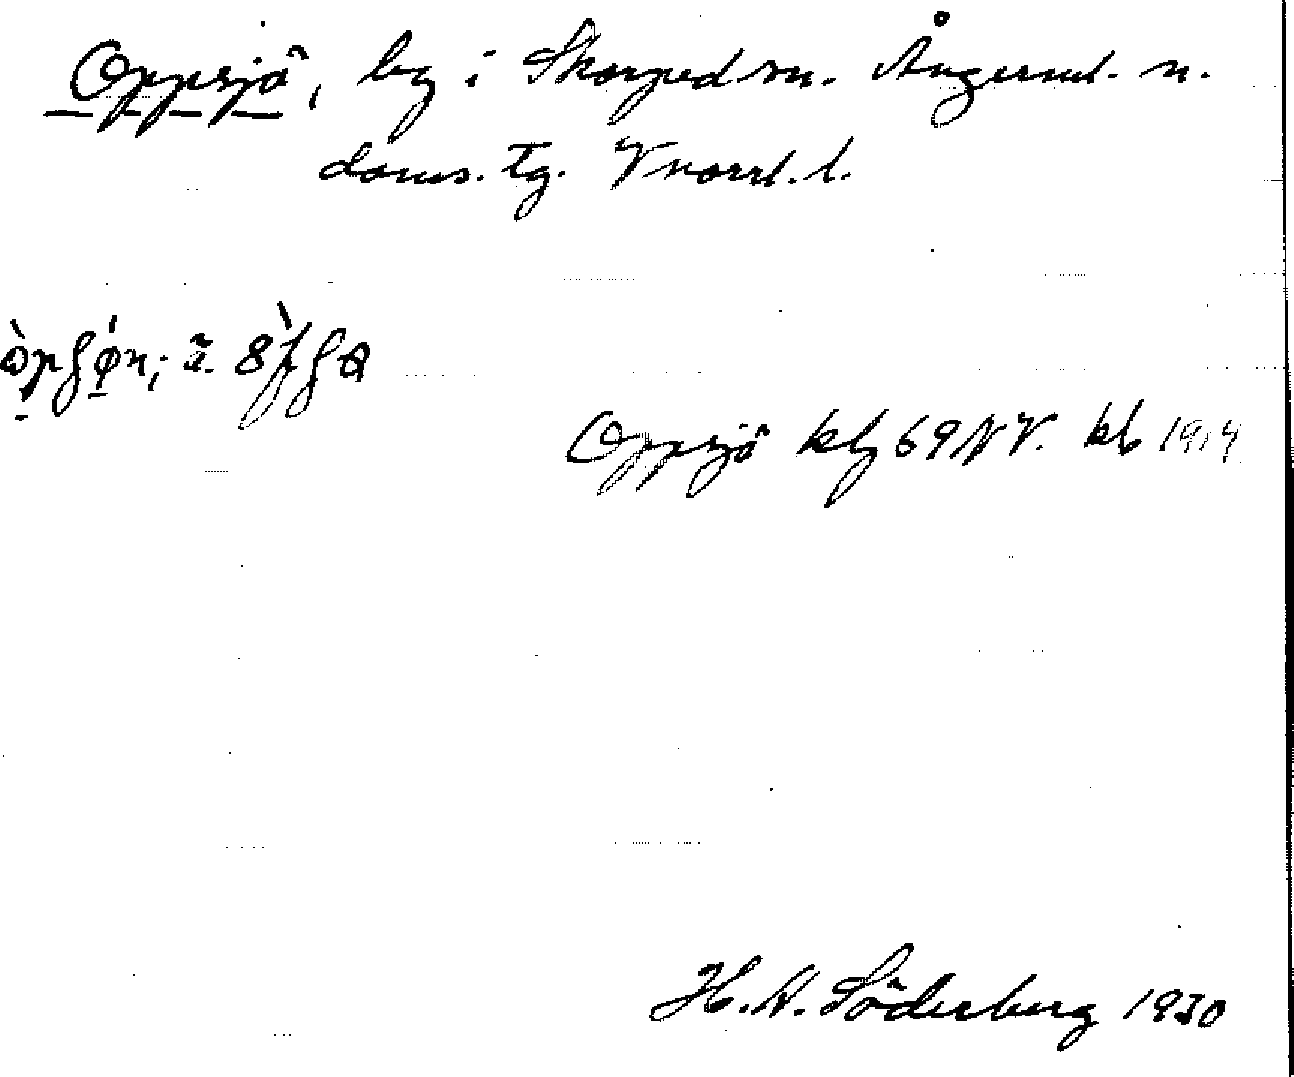 Oppsjö, by i Skorped sn. Ångerml. n.
doms. tg. Vnorrl. l.
Oppsjö kbl 69 NV. kb 1914
H. A. Söderberg 1930